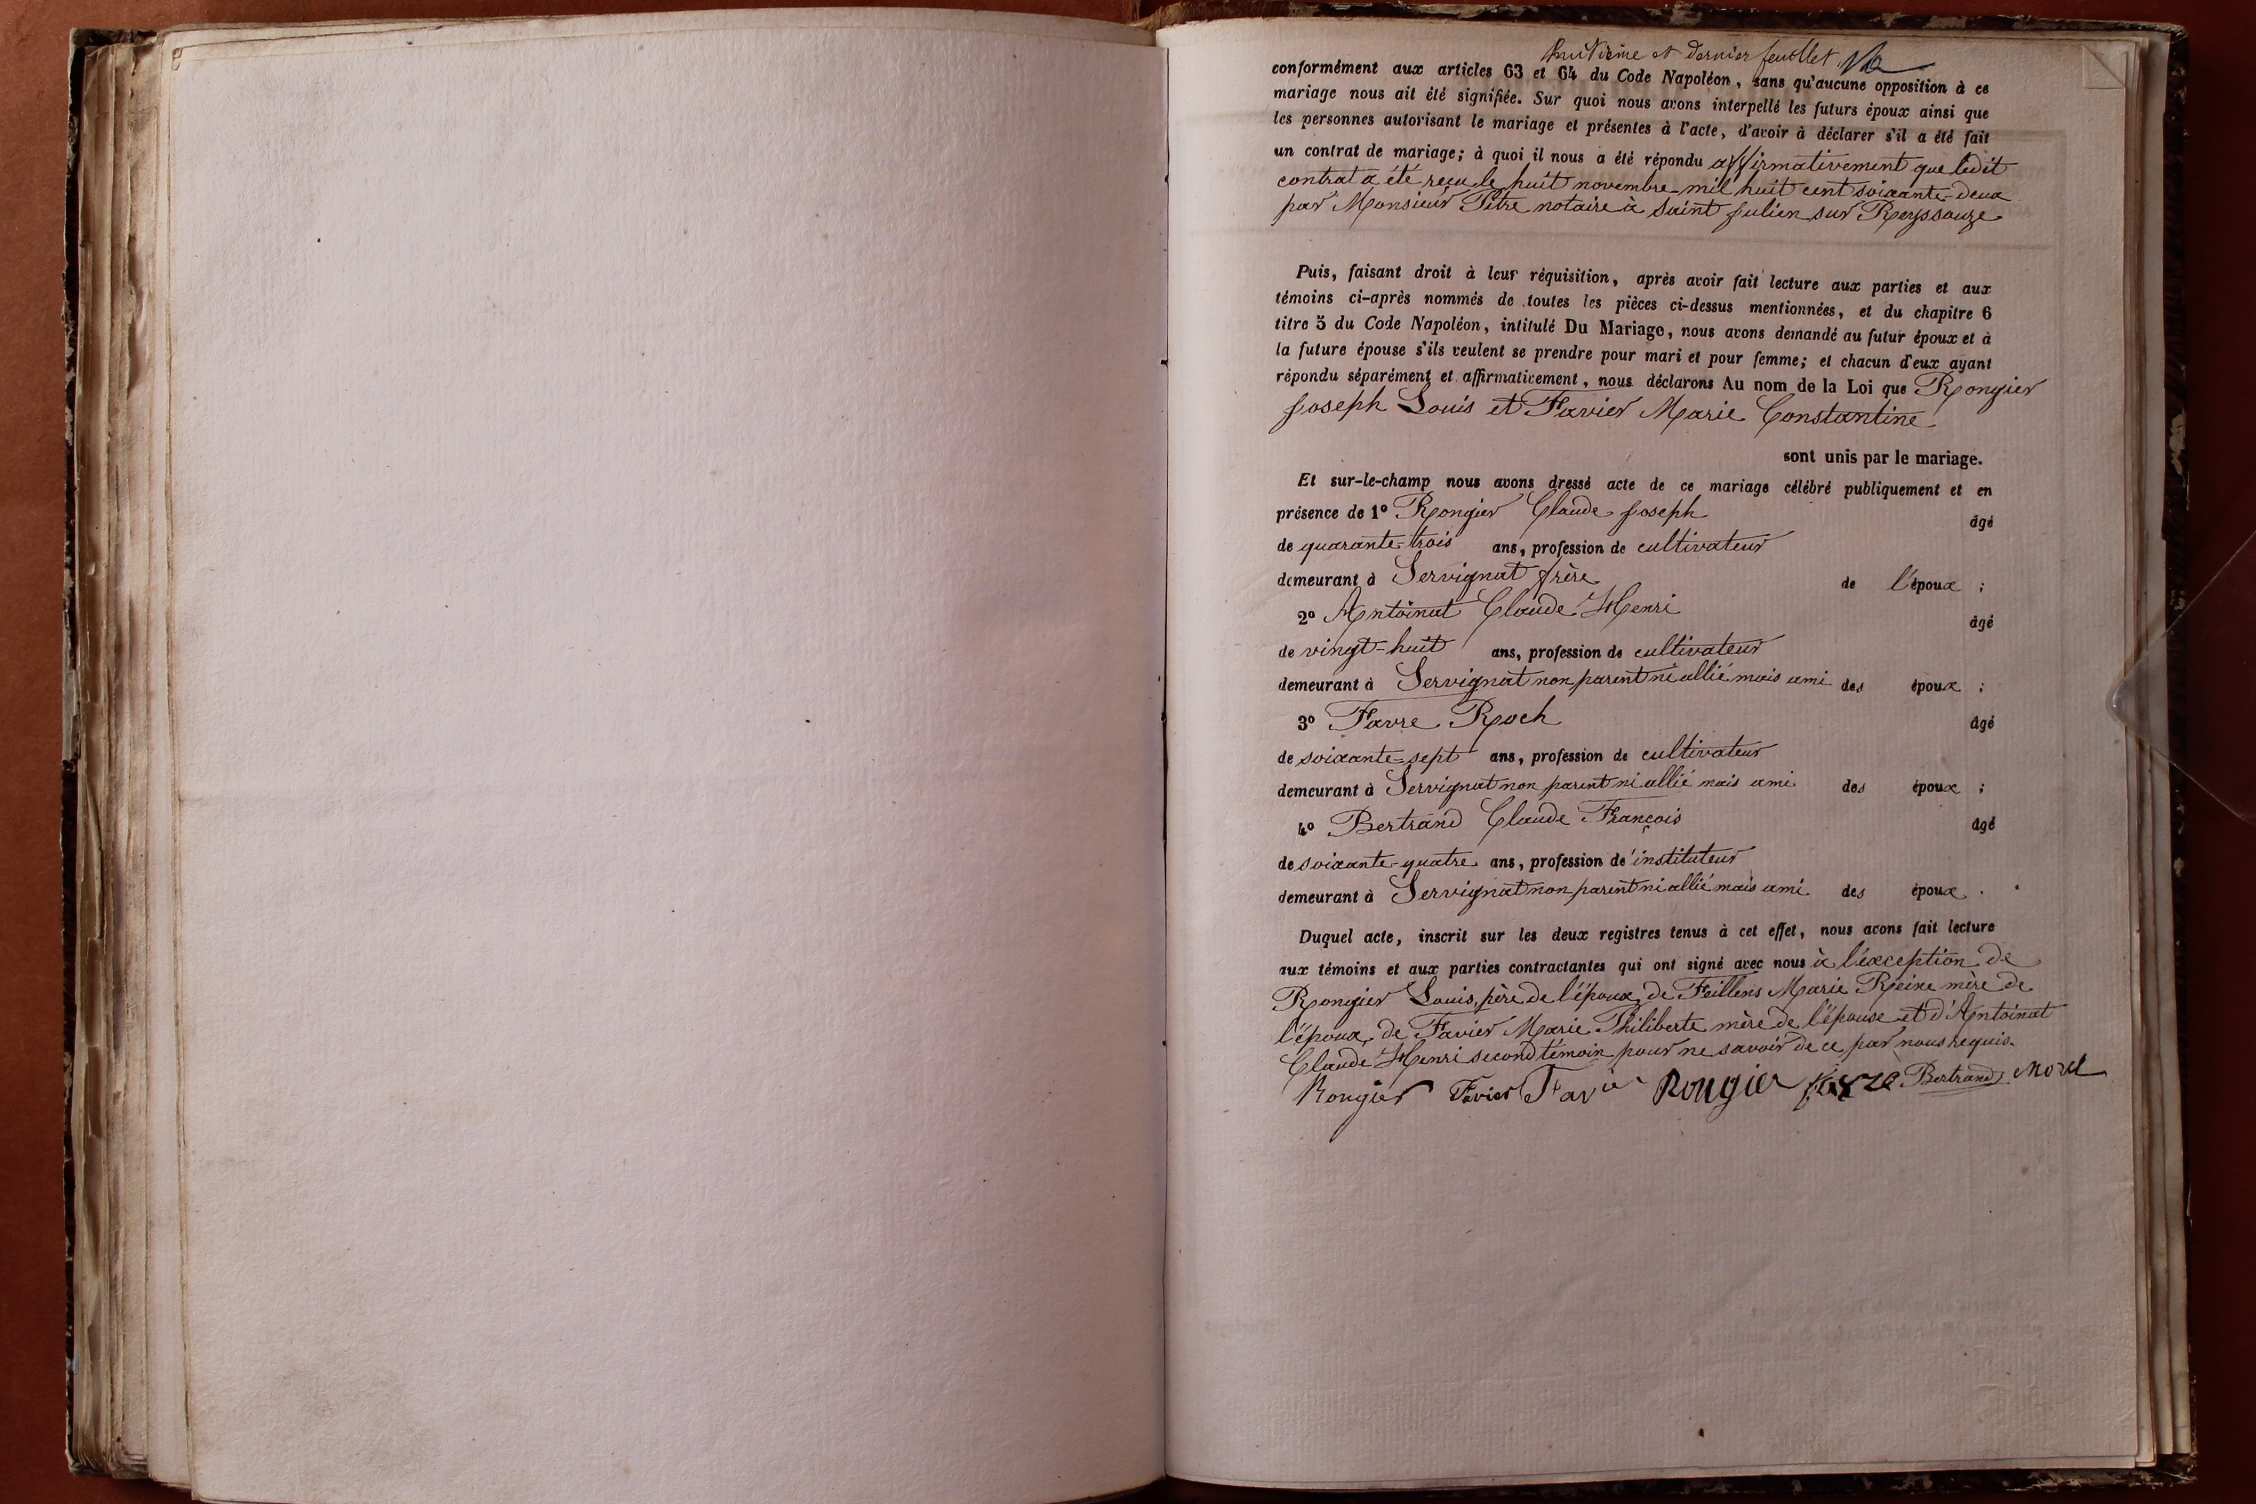 huitième et dernier feuillet
conformément aux articles 63 et 64 du Code Napoléon, sans qu'aucune opposition à ce
mariage nous ait été signifiée. Sur quoi nous avons interpellé les futurs époux ainsi que
les personnes autorisant le mariage et présentes à l'acte, d'avoir à déclarer s'il a été fait
un contrat de mariage; à quoi il nous a été répondu affirmativement que ledit
contrat a été reçu le huit novembre mil huit cent soixante-deux
par Monsieur Pitre notaire à Saint Julien sur Reyssouze
Puis, faisant droit à leur réquisition, après avoir fait lecture aux parties et aux
témoins ci-après nommés de toutes les pièces ci-dessus mentionnées, et du chapitre 6
titre 5 du Code Napoléon, intitulé Du Mariage, nous avons demandé au futur époux et à
la future épouse s'ils veulent se prendre pour mari et pour femme; et chacun d'eux ayant
répondu séparément et affirmativement, nous déclarons Au nom de la Loi que Rongier
Joseph Louis et Favier Marie Constantine
sont unis par le mariage.
Et sur-le-champ nous avons dressé acte de ce mariage célébré publiquement et en
présence de 1º Rongier Claude Joseph âgé
de quarante-trois ans, profession de cultivateur
demeurant à Servignat frère de l'époux ;
2º Antoinat Claude Henri âgé
de vingt-huit ans, profession de cultivateur
demeurant à Servignat non parent ni allié mais ami des époux ;
3º Favre Roch âgé
de soixante-sept ans, profession de cultivateur
demeurant à Servignat non parent ni allié mais ami des époux ;
4º Bertrand Claude François âgé
de soixante-quatre ans, profession d'instituteur
demeurant à Servignat non parent ni allié mais ami des époux .
Duquel acte, inscrit sur les deux registres tenus à cet effet, nous avons fait lecture
aux témoins et aux parties contractantes qui ont signé avec nous à l'exception de
Rongier Louis, père de l'époux, de Feillens Marie Reine mère de
l'époux, de Favier Marie Philiberte mère de l'épouse et d'Antoinat
Claude Henri second témoin pour ne savoir de ce par nous requis.
Rongier Favier Favier Rougier Favre Bertrand Morel